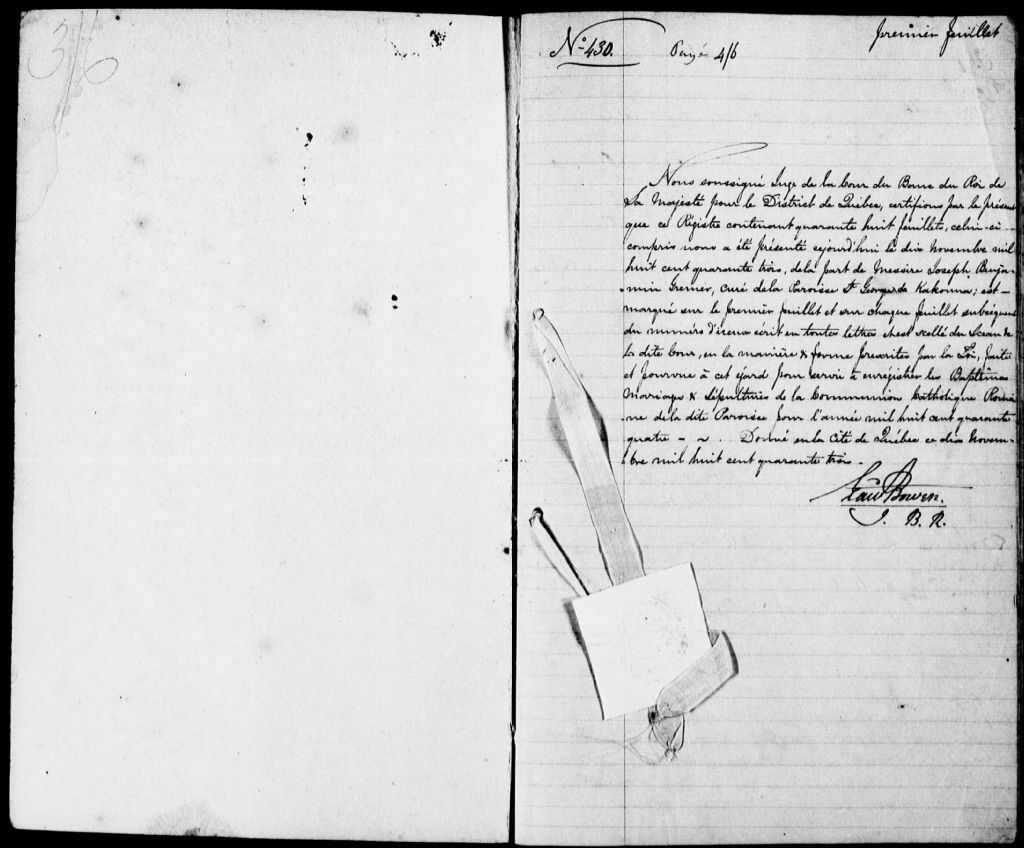 3/6
premier feuillet
No. 430. Payé 4/6
Nous soussigné Juge de la Cour du Banc du Roi de
Sa Majesté pour le District de Québec, certifions par le présent
que ce Régistre contenant quarante huit feuillets, celui-ci
compris nous a été présenté aujourd'hui le dix Novembre mil
huit cent quarante trois, de la part de Messire Joseph Benja-
-min Grenier, curé de la Paroisse St George de Kakouna; est
marqué sur le premier feuillet et sur chaque feuillet subséquent
du numéro d'iceux écrit en toutes lettres et est scellé du Sceau de
la dite Cour, en la manière & forme prescrites par la Loi, faite
et pourvue à cet égard pour servir à enrégistrer les Baptêmes
Mariages & Sépultures de la Communion Catholique Romai
-ne de la dite Paroisse pour l'année mil huit cent quarante
quatre - ~ . Donné en la Cité de Québec ce dix Novem-
-bre mil huit cent quarante trois.
Edw Bowen.
J. B. R.